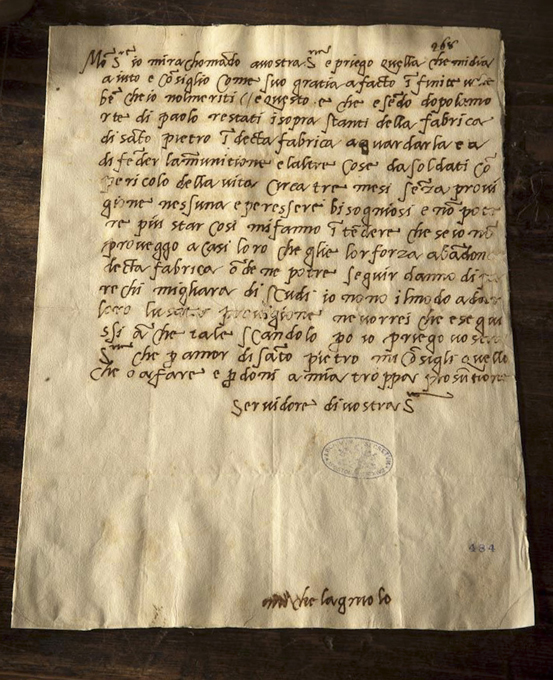 968
Mo S.re io mi rachomado a vostra S.ria e priego quella che mi dia
aiuto e cōsiglio come suo gratia a facto ĩfinite
bē che io nol meriti e questo e che esēdo dopo la mo
rte di paolo restati i sopra stanti della fabrica
di sāto pietro ĩ decta fabrica a guardarla e a
difēder la munitione e l altre cose da soldati cō
pericolo della vita circa tre mesi sēza provi
gione nessuna e per essere bisogniosi e nō pote
re piu star cosi mi fanno ĩtēdere che se io nō
proveggo a casi loro che gli e lor forza abādon
decta fabrica ōde ne potre seguir danno di
rechi migliara di scudi io nō o il modo a dar
loro la provigione ne vorrei che e se gui
ssi ā che tale scandolo po io priego vost
S.ria che p amor di sāto pietro mi cōsigli quello
che o a fare e p doni a mia troppa prosūtione
Servidore di vostra S
484
michelagniolo